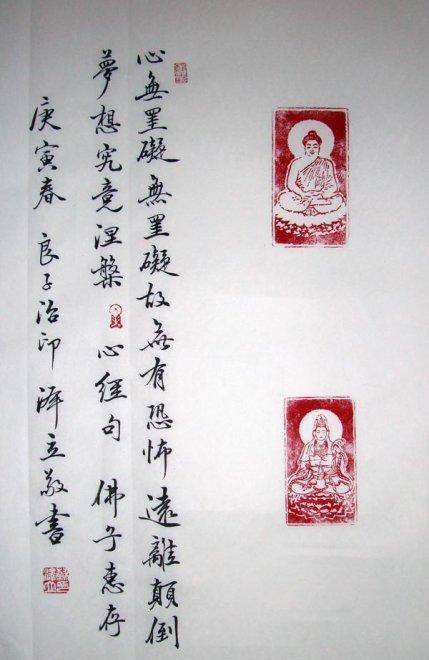 心無罣礙無罣礙故無有恐怖遠離顛倒
夢想究竟涅槃 心經句 佛子惠存
庚寅春 良子治印 澤立敬書